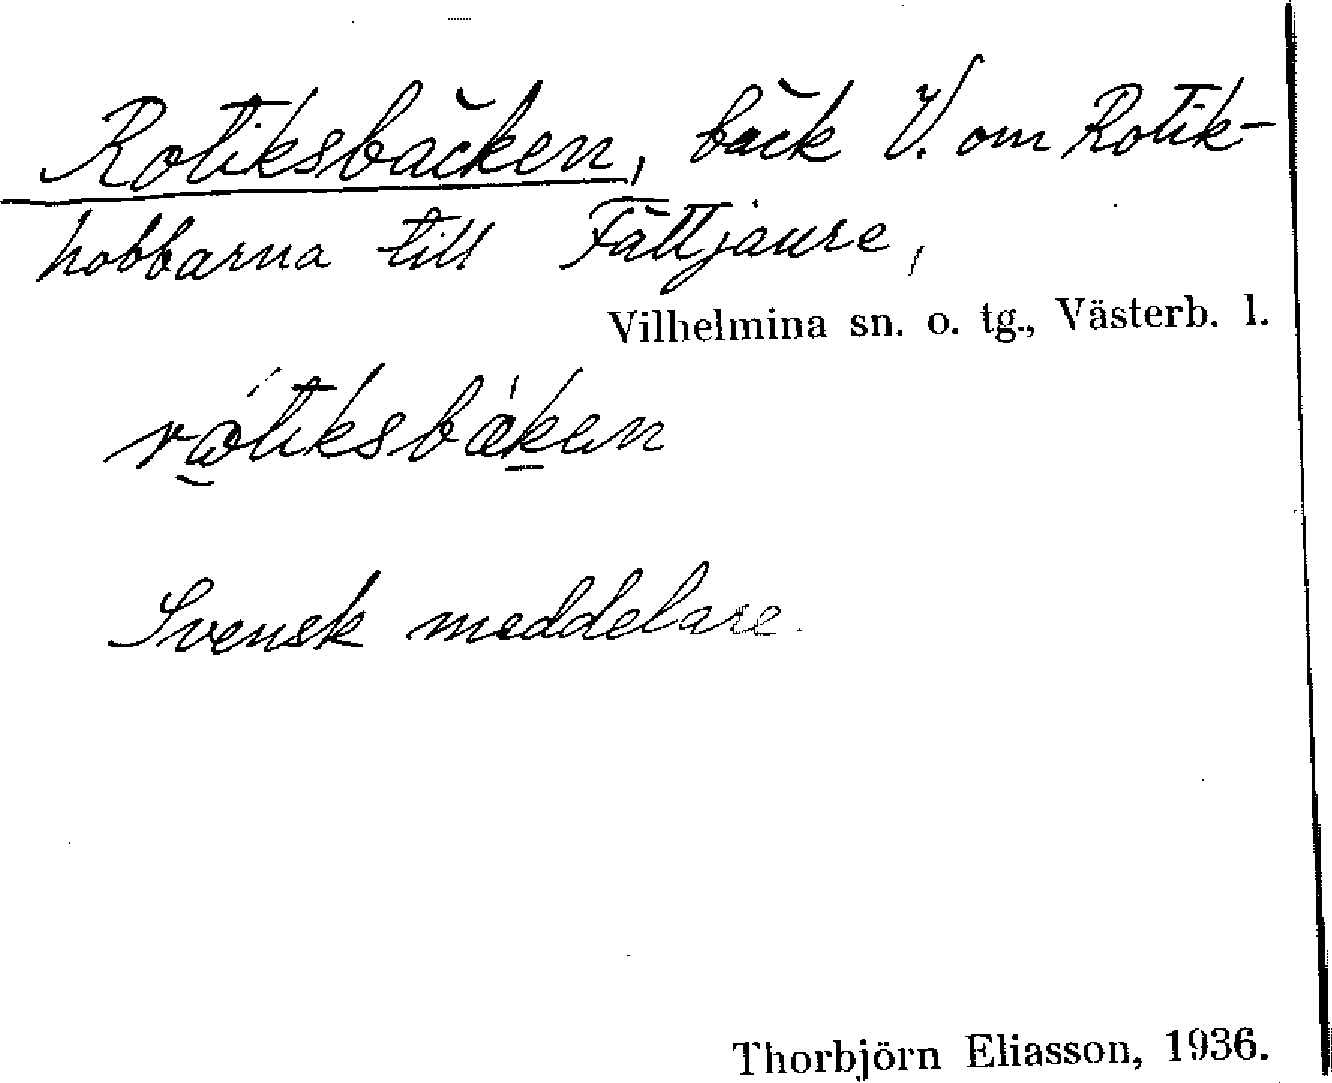 Rotiksbäcken, bäck V. om Rotik-
hobbarna till Fättjaure,
Vilhelmina sn. o. tg., Västerb. l.
Svensk meddelare.
Thorbjörn Eliasson, 1936.